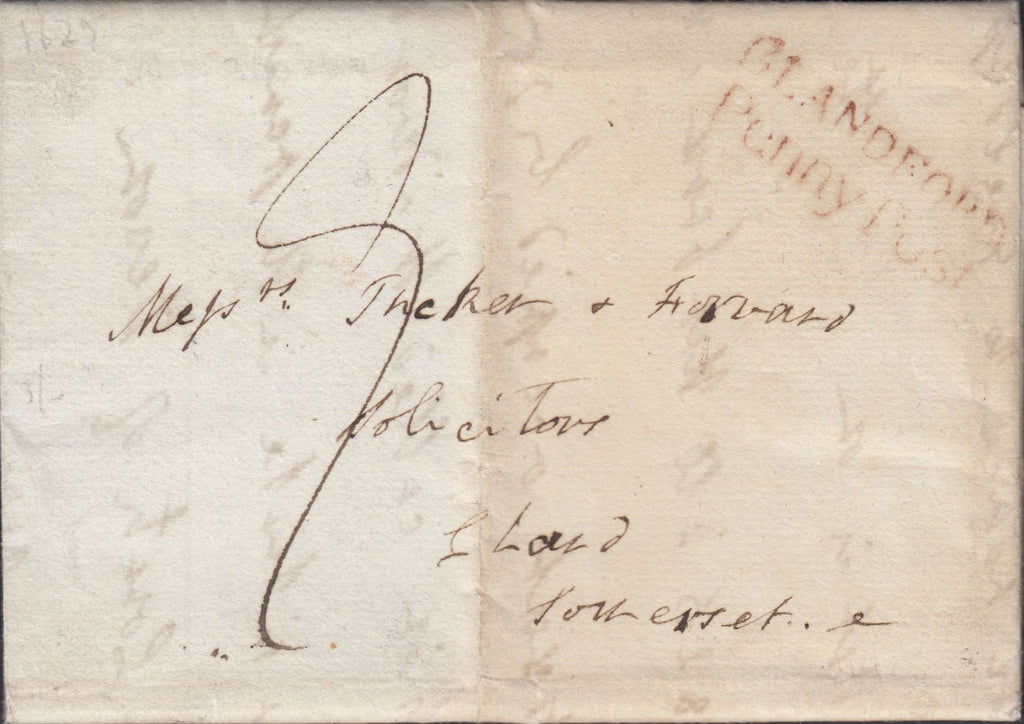 BLANDFORD
Penny Post
Messrs. Tucker & Forward
Solicitors
Chard
Somerset.. e